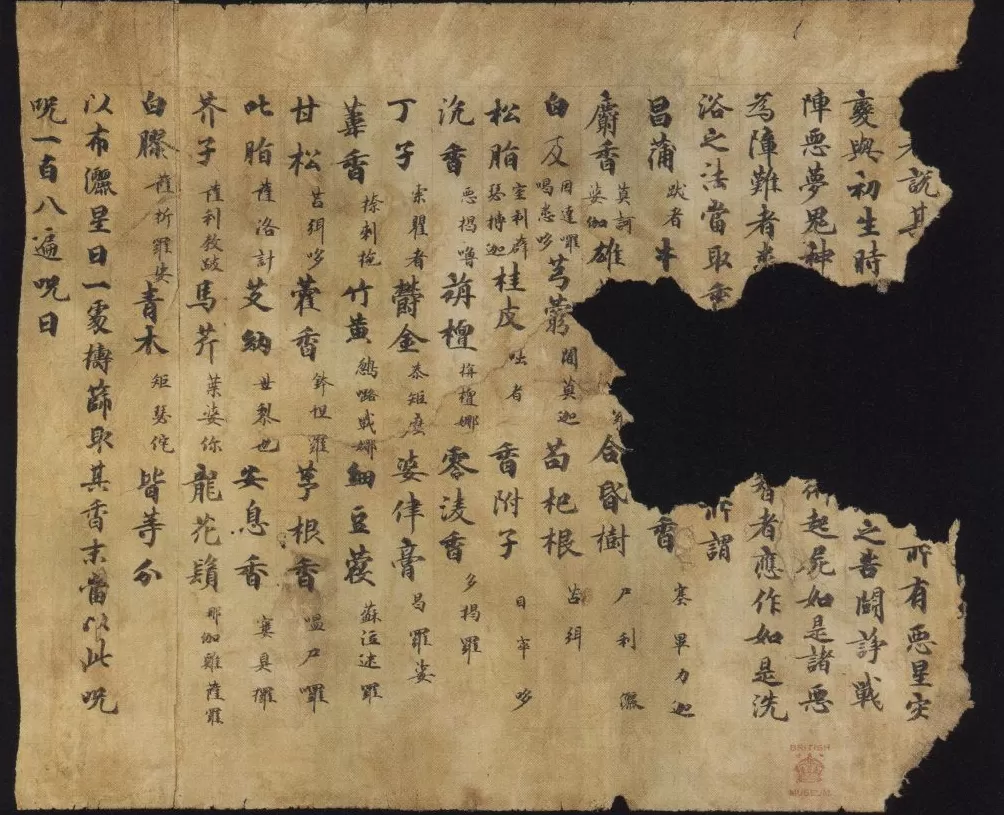 說其 所有惡星灾
變與初生時 之苦鬪諍戰
陣惡夢鬼神 術起屍如是諸惡
為障難者悉 智者應作如是洗
浴之法當取 所謂
昌蒲 跋者 香 塞畢力迦
麝香 莫訶婆伽 雄 合昏樹 尸利灑
白及 因達囉喝悉哆 芎藭 闍莫迦 苟杞根 苫弭
松脂 室利薜瑟搏迦 桂皮 咄者 香附子 目窣哆
沉香 惡揭嚕 旃檀 栴檀娜 零淩香 多揭羅
丁子 索瞿者 欝金 茶矩麼 婆律膏 曷羅娑
葦香 捺剌柁 竹黃 鶣嚧戰娜 細豆蔻 蘇泣迷羅
甘松 苫弭哆 藿香 鉢怛羅 茅根香 嗢尸囉
叱脂 薩洛計 艾納 世黎也 安息香 窶具攞
芥子 薩利殺跛 馬芹 葉婆你 龍花鬚 那伽雞薩羅
白膠 薩折羅娑 青木 矩瑟侘 皆等分
以布灑星日一處擣篩取其香末當以此呪
呪一百八遍呪曰
BRITISH
MUSEUM